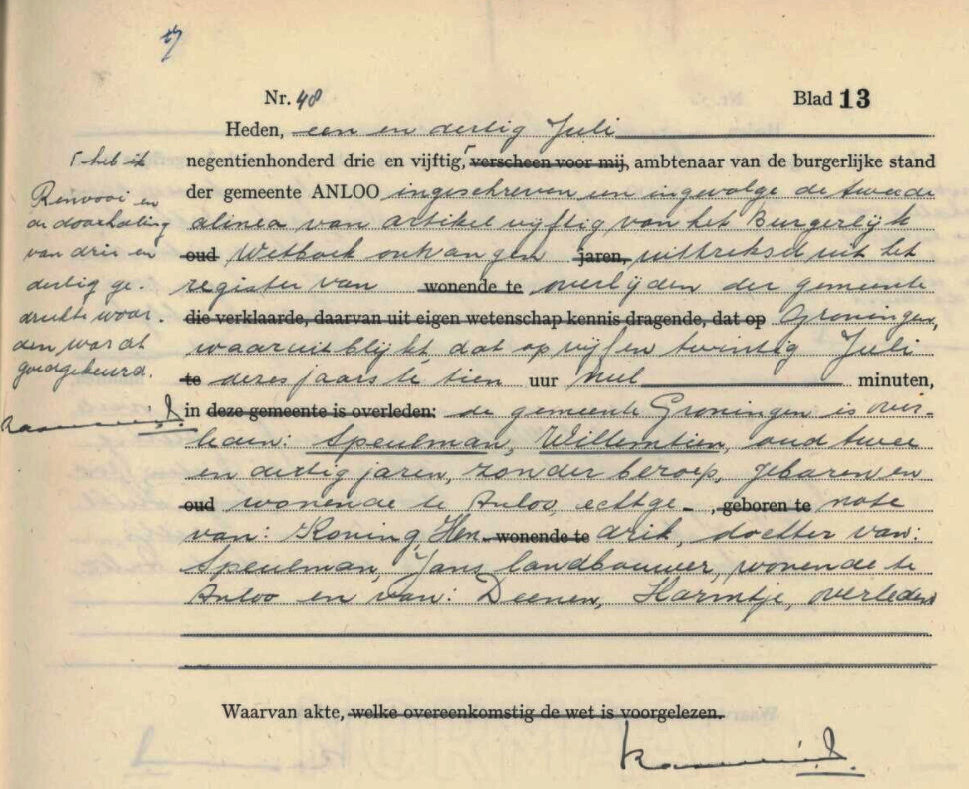 Nr. 48 Blad 13
Heden, een en dertig Juli
negentienhonderd drie en vijftig, ⌈ verscheen voor mij, ambtenaar van de burgerlijke stand
der gemeente ANLOO ingeschreven een ingevolge de tweede
alinea van artikel vijftig van het Burgerlijk
oud Wetboek ontvangen jaren, uittreksel uit het
register van wonende te overlijden der gemeente
die verklaarde, daarvan uit eigen wetenschap kennis dragende, dat op Groningen,
waaruit blijkt dat op vijf en twintig Juli
te dezes jaars te tien uur nul minuten,
in deze gemeente is overleden: de gemeente Groningen is over-
leden: Speulman, Willemtien, oud twee
en dertig jaren, zonder beroep, geboren en
oud wonende te Anloo, echtge- , geboren te note
van: Koning, Hen- wonende te drik, dochter van:
Speulman, Jans landbouwer, wonende te
Anloo en van: Deenen, Harmtje, overleden
Waarvan akte, welke overeenkomstig de wet is voorgelezen.
⌈ heb ik
Renvooi en
de doorhaling
van drie en
dertig ge-
drukte woor-
den wordt
goedgekeurd.